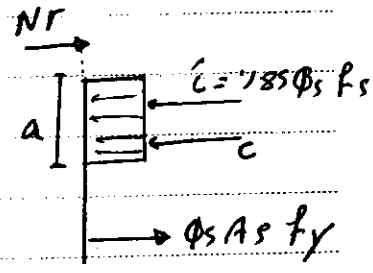 Nr
ć = '85 Φs fs
a
c
Φs As fy